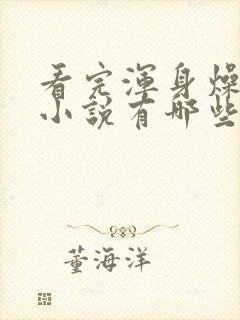 看完浑身燥
小说有哪些
董海洋